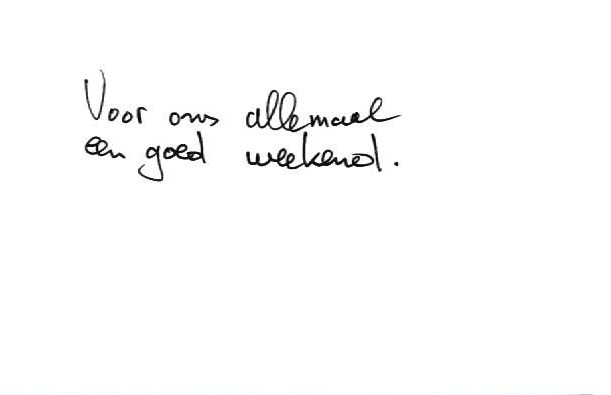 Voor ons allemaal
een goed weekend.